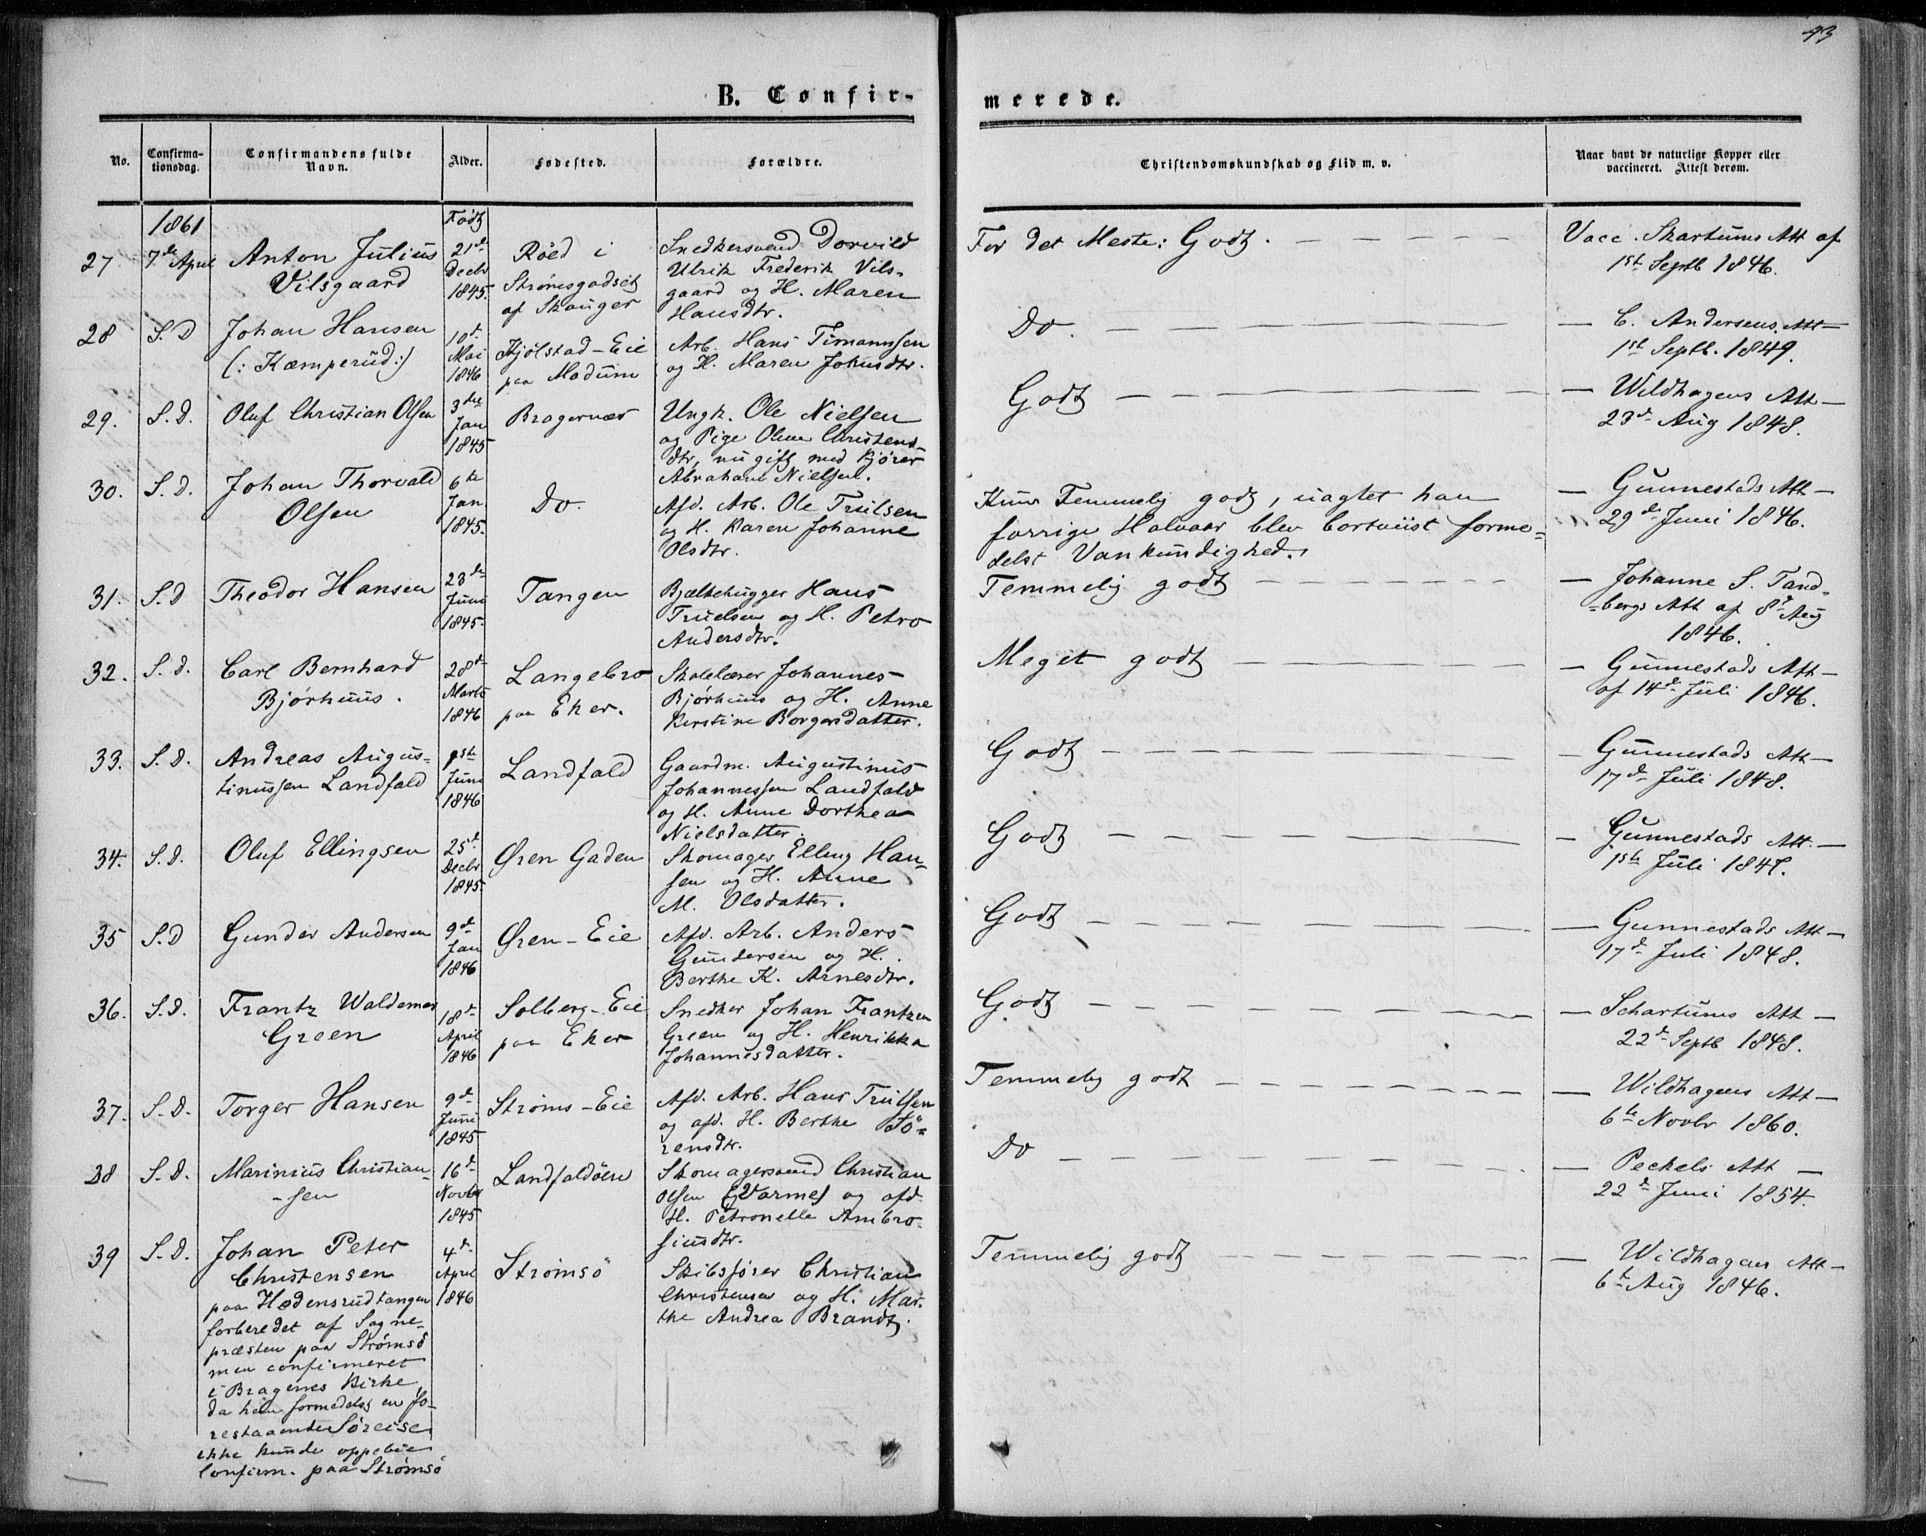 93
B. Confir-
merede.
No.
Confirma-
tionsdag.
Confirmandens fulde
Navn.
Alder.
Fødested.
Forældre.
Christendomskundskab og Flid m. v.
Naar havt de naturlige Kopper eller
vaccineret. Attest derom.
1861
Født
27 7de April Anton Julius
Vilsgaard
21de
Decbr
1845.
Röed i
Strömsgodset
af Skouger
Snedkersvend Dorvild
Ulrik Frederik Vils-
gaard og H. Maren
Hansdtr.
For det Meste: Godt.
Vacc. Skartums Att af
1ste Septb 1846.
28 S. D Johan Hansen
(: Kæmperud:)
10de
Mai
1846
Kjölstad-Eie
paa Modum
Arb. Hans Timannsen
og H. Maren Johnsdtr.
Do.
C. Andersens Att
1ste Septb. 1849.
29. S. D. Oluf Christian Olsen
3die
Jan
1845
Bragernæs
Ungk. Ole Nielsen
og Pige Oline Christens-
dtr, nu gift med Kjörer
Abraham Nielsen.
Godt
Wildhagens Att
23de Aug 1848.
30. S. D. Johan Thorvald
Olsen
6te
Jan
1845.
Do.
Afd. Arb. Ole Trulsen
og H. Karen Johanne
Olsdtr.
Kun Temmelig godt, uagtet han
forrige Halvaar blev bortviist forme-
delst Vankundighed.
Gunnestads Att
29de Juni 1846.
31. S. D Theodor Hansen
23de
Juni
1845.
Tangen
Bjælkehugger Hans
Truelsen og H. Petro
Andersdtr.
Temmelig godt
Johanne S. Tand-
-bergs Att af 8de Aug
1846.
32. S. D. Carl Bernhard
Bjørhuus.
28de
Marts
1846
Langebro
paa Eker.
Skolelærer Johannes
Bjørhuus og H. Anne
Kirstine Borgersdatter.
Meget godt
Gunnestads Att
af 14de Juli 1846.
33. S. D. Andreas Augus-
tinussen Landfald
1ste
Juni
1846
Landfald
Gaardm. Augustinus
Johannessen Landfald
og H. Anne Dorthea
Nielsdatter.
Godt
Gunnestads Att
17de Juli 1848.
34. S. D. Oluf Ellingsen
25de
Decbr
1845
Øren Gaden
Skomager Elling Han-
sen og H. Anne
M. Olsdatter.
Godt
Gunnestads Att.
1ste Juli 1847.
35 S. D Gunder Andersen
9de
Jan
1846
Øren-Eie
Afd. Arb. Anders
Gundersen og H.
Berthe K. Arnesdtr.
Godt
Gunnestads Att
17de Juli 1848.
36. S. D. Frantz Waldemar
Green
18de
April
1846
Solberg-Eie
paa Eker
Snedker Johan Frantzen
Green og H. Henrikka
Johannesdatter.
Godt
Schartums Att
22de Septb 1848.
37. S. D. Torger Hansen
9de
Juni
1845
Strøms-Eie
Afd. Arb. Hans Trulsen
og afd. H. Berthe Sö-
rensdtr.
Temmelig godt
Wildhagens Att
6te Novbr 1860.
38 S. D. Marinius Christian-
-sen
16de
Novbr
1845
Landfaldöen
Skomagersvend Christian
Olsen og afd.
H. Petronelle Ambro-
siusdtr.
Do
Peckels Att
22de Juni 1854.
39 S. D. Johan Peter
Christensen
paa Hedensrudtangen
forberedet af Sogne-
præsten paa Strømsö
men confirmeret
i Bragernes Kirke,
da han formedelst en fo-
restaaende Søreise
ikke kunde oppebie
Confirm. paa Strømsö
4de
April
1846
Strømsö
Skibsfører Christian
Christensen og H. Mar-
the Andrea Brandt.
Temmelig godt
Wildhagens Att
6te Aug 1846.